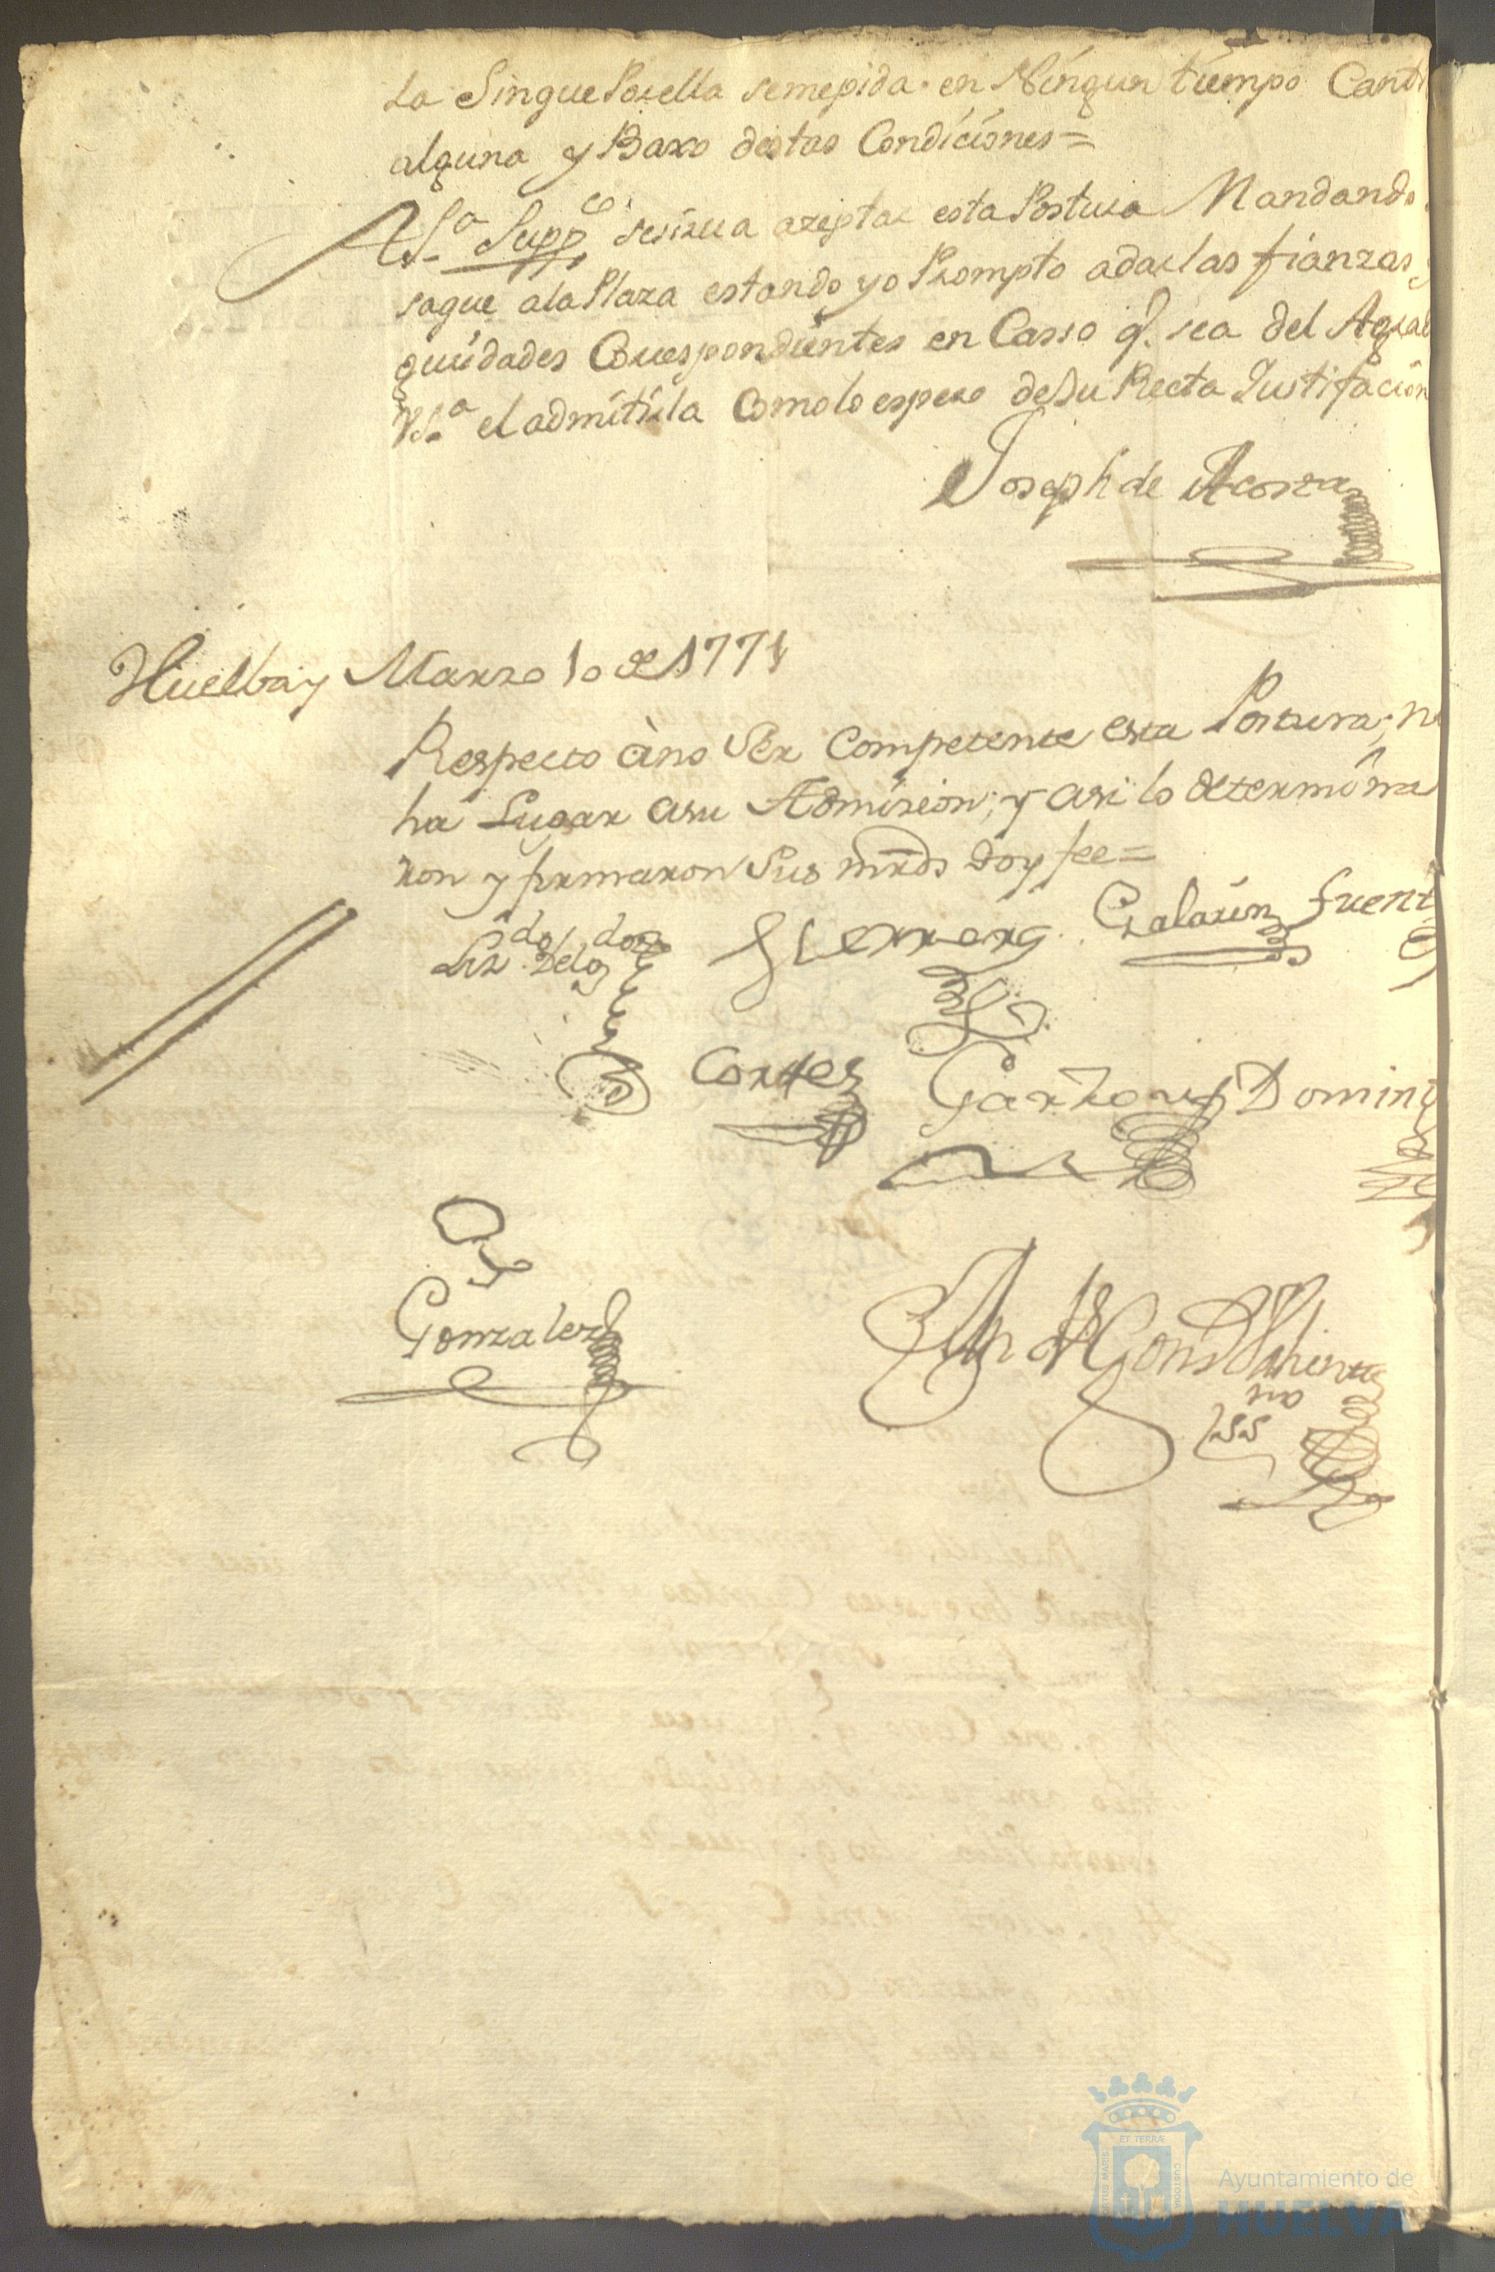 la Singue Por ella se me pida en Ningun tiempo Canti
alguna y Baxo destas Condiciones=
A V.S.ª Supp.co se sirva azeptar esta Postura Mandando
saque a la Plaza estando yo Prompto a dar las fianzas y
guridades Correspondientes en Casso q.e sea del Agrad
V.S.ª el admitirla Como lo espero de Su Recta Justifacion
Joseph de Acosta
Huelba y Marzo 10 de 1771
Respecto à no Ser Competente esta Postura, no
ha Lugar a su Admision; y asi lo determina
ron y firmaron Sus mrds doy fee=
Liz.do Delgado
Guerrero
Galarin
fuent
Cortes
Garzon
Doming
Gonzalez
Ayuntamiento de
HUELVA